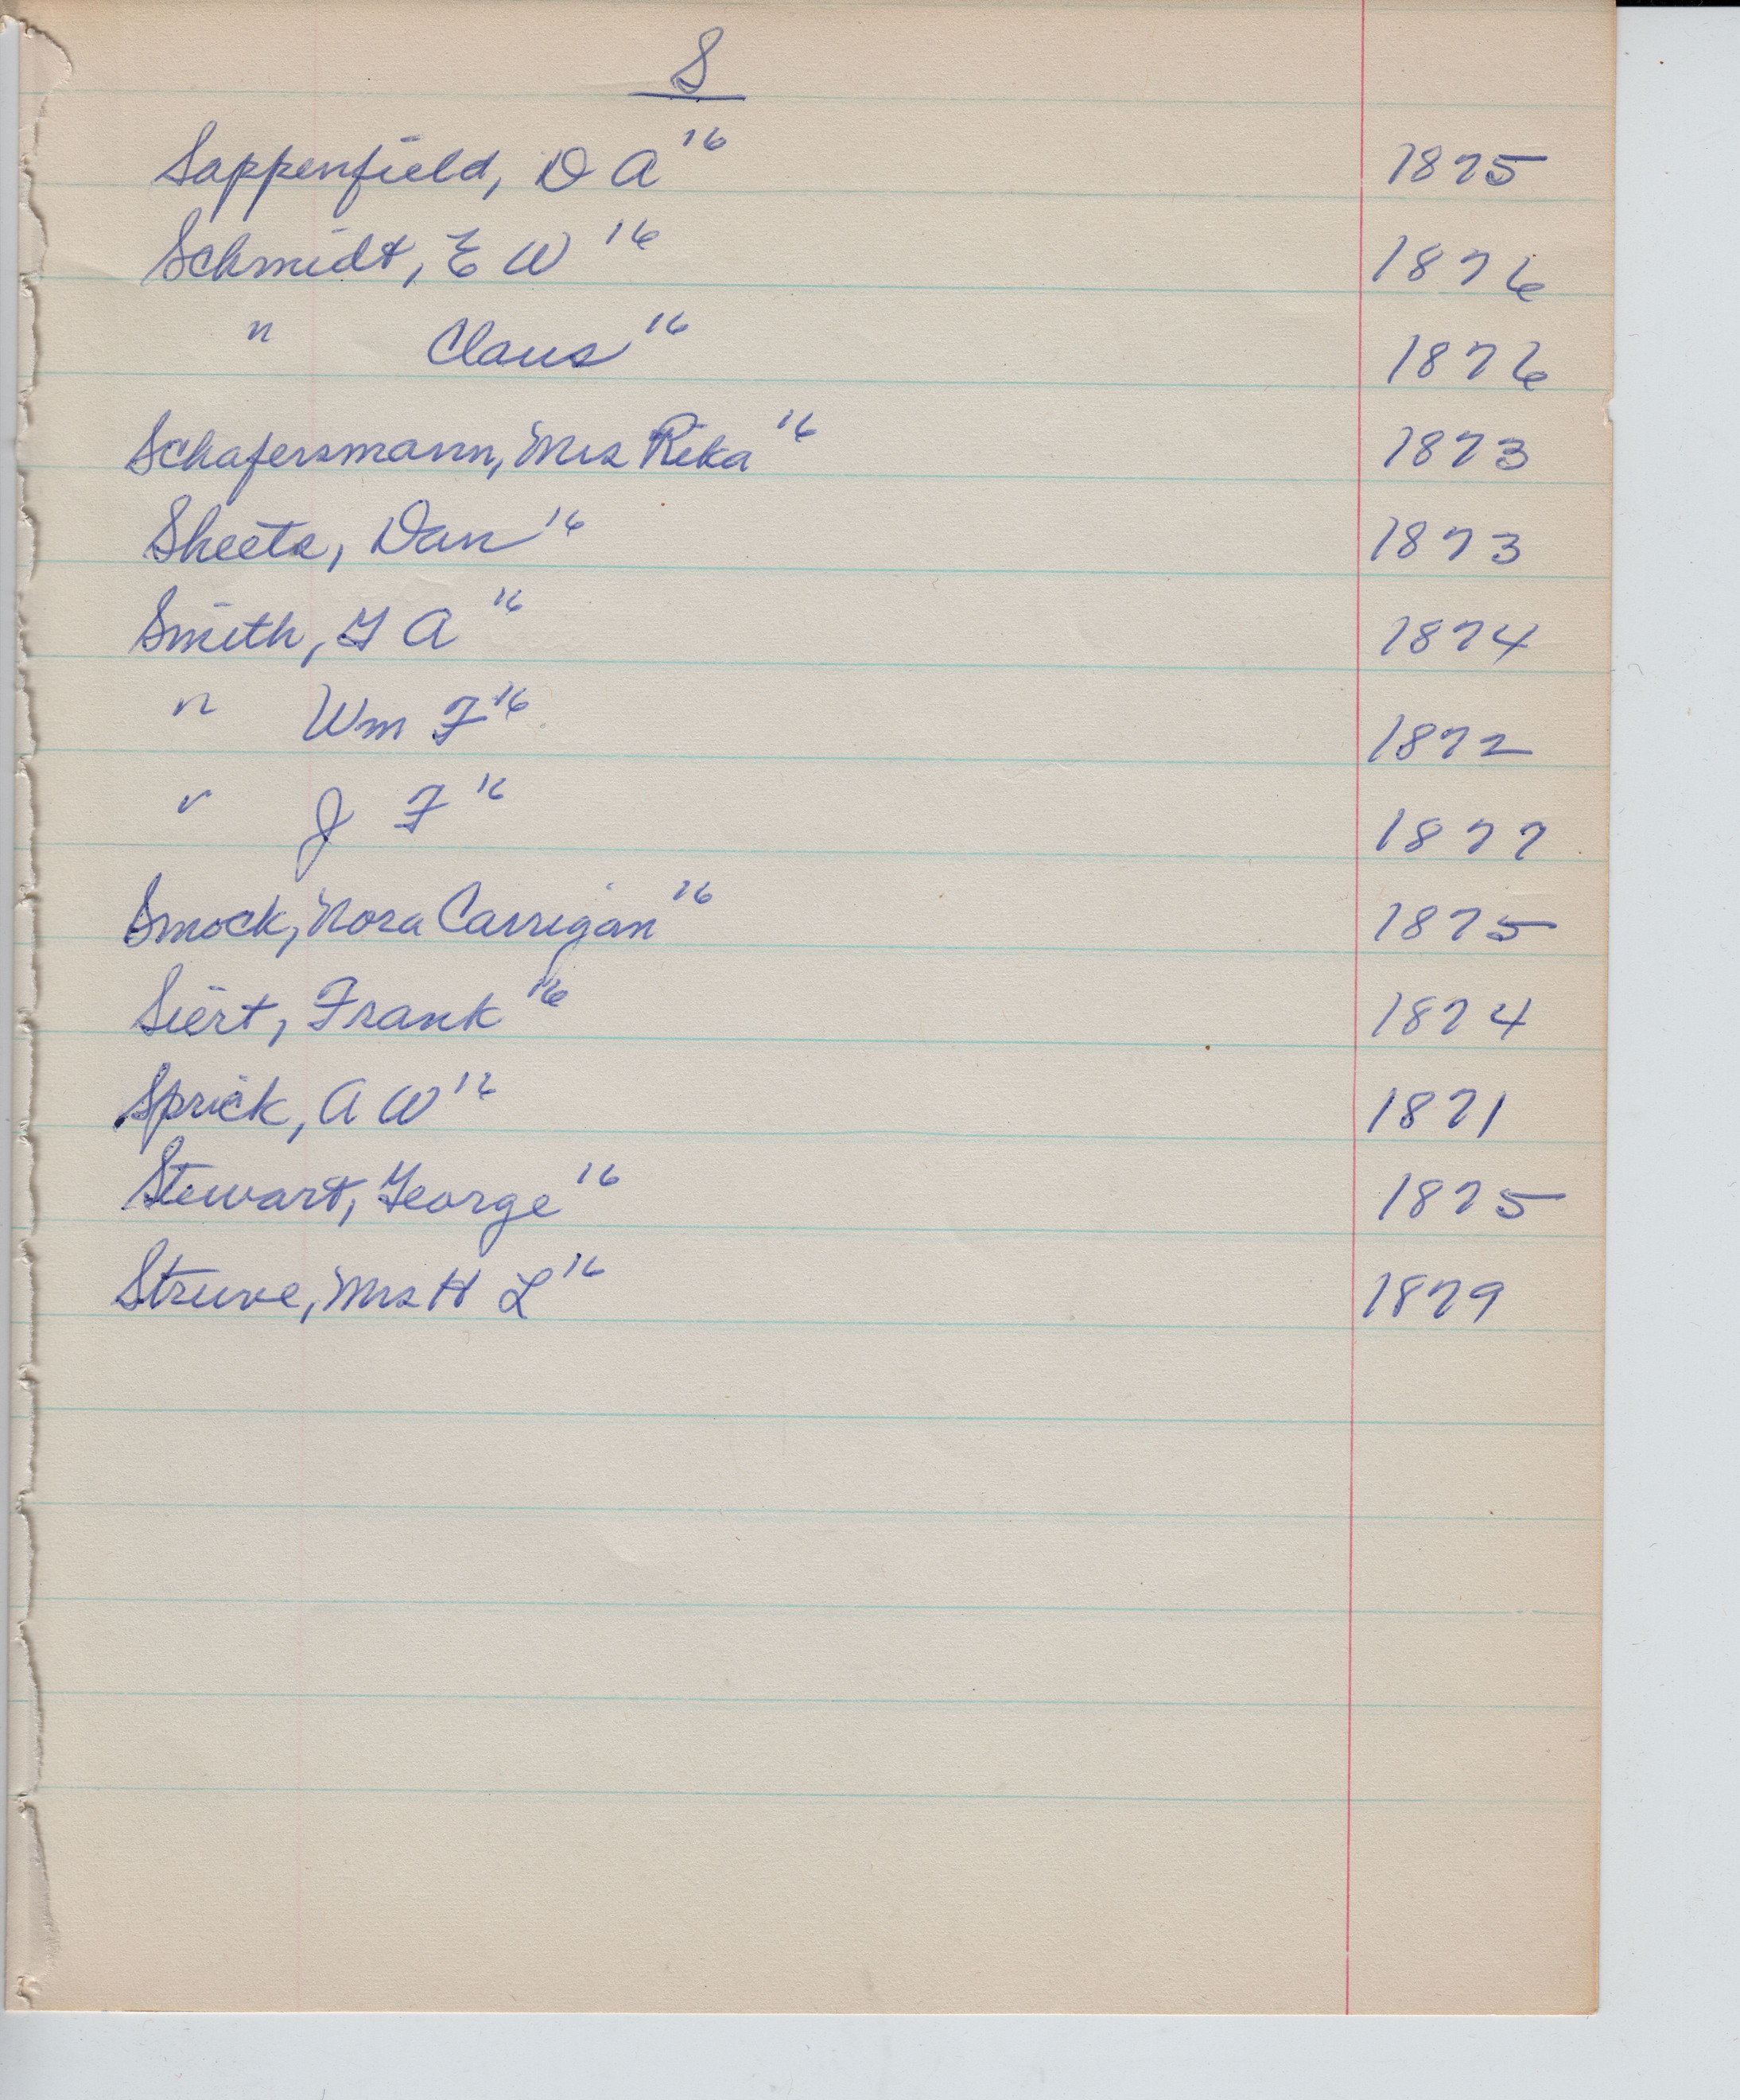 S
Sappenfield, D A 16 1875
Schmidt, E W 16 1876
" Claus 16 1876
Schafersmann, Mrs Rika 16 1873
Sheets, Dan 16 1873
Smith, G A 16 1874
" Wm F 16 1872
" J F 16 1877
Smock, Nora Carrigan 16 1875
Siert, Frank 16 1874
Sprick, A W 16 1871
Stewart, George 16 1875
Struve, Mrs H L 16 1879